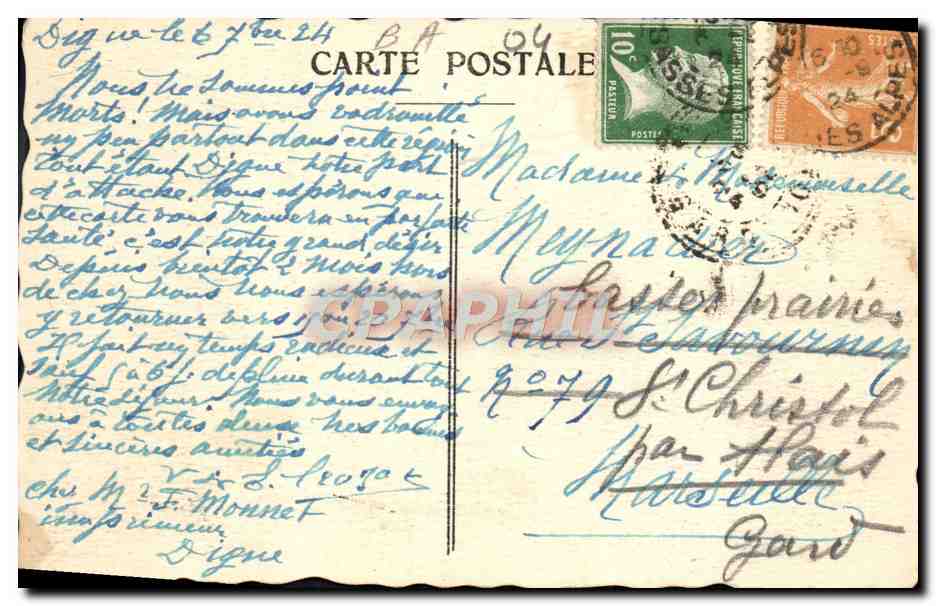 Digne le 6 7bre 24
BA 04
CARTE POSTALE
Nous ne sommes point
morts! Mais avons vadrouillé
un peu partout dans cette région
tout étant Digne notre port
d'attache. Nous espérons que
cette carte vous trouvera en parfaite
santé c'est notre grand désir
Depuis bientôt 2 mois hors
de chez nous nous espérons
y retourner vers
Il fait un temps radieux et
sauf 5 à 6 j. de pluie durant tout
notre séjour. Nous vous envoy
ons à toutes deux nos bonnes
et sincères amitiés
V.
chez M F. Monnet
imprimeur
Digne
10c
REPUBLIQUE FRANÇAISE
PASTEUR
POSTES
24
ALPES
Madame & Mademoiselle
Meynadier
Lasser prairie
Rue St Savournin
No 79
St Christol
par Alais
Marseille
Gard
CPAPHIL